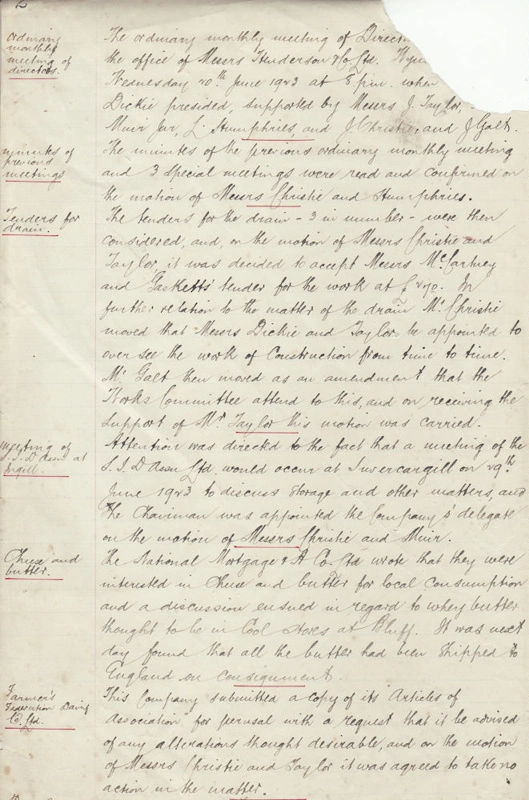 ordinary
monthly
meeting of
directors.
The ordinary monthly meeting of Direc
the office of Messrs Henderson & Co Ltd.
Wednesday 20th June 1923 at 8 p.m. when
Dickie presided, supported by Messrs J. Taylor,
Muir Jnr, L. Humphries, and J. Christie, and J. Galt.
minutes of
previous
meetings
The minutes of the previous ordinary monthly meeting
and 3 special meetings were read and confirmed on
the motion of Messrs Christie and Humphries.
Tenders for
drain.
The tenders for the drain – 3 in number – were then
considered, and, on the motion of Messrs Christie and
Taylor it was decided to accept Messrs McCartney
and Gasketts' tender for the work at £270. In
further relation to the matter of the drain Mr Christie
moved that Messrs Dickie and Taylor be appointed to
over see the work of construction from time to time.
Mr Galt then moved as an amendment that the
Works Committee attend to this, and on receiving the
support of Mr Taylor this motion was carried.
Meeting of
S.I.D Assn at
Attention was directed to the fact that a meeting of the
S.I. D Assn Ltd, would occur at Invercargill on 29th
June 1923 to discuss storage and other matters, and
the Chairman was appointed the Company's delegate
on the motion of Messrs Christie and Muir.
Cheese and
butter.
The National Mortgage & A Co. Ltd wrote that they were
interested in Cheese and butter for local consumption
and a discussion ensued in regard to whey butter
thought to be in Cool stores at Bluff. It was next
day found that all the butter had been shipped to
England on consignment.
Farmer's
Federation Dairy
Co. Ltd.
This Company submitted a copy of its Articles of
Association for perusal with a request that it be advised
of any alterations thought desirable, and on the motion
of Messrs Christie and Taylor it was agreed to take no
action in the matter.